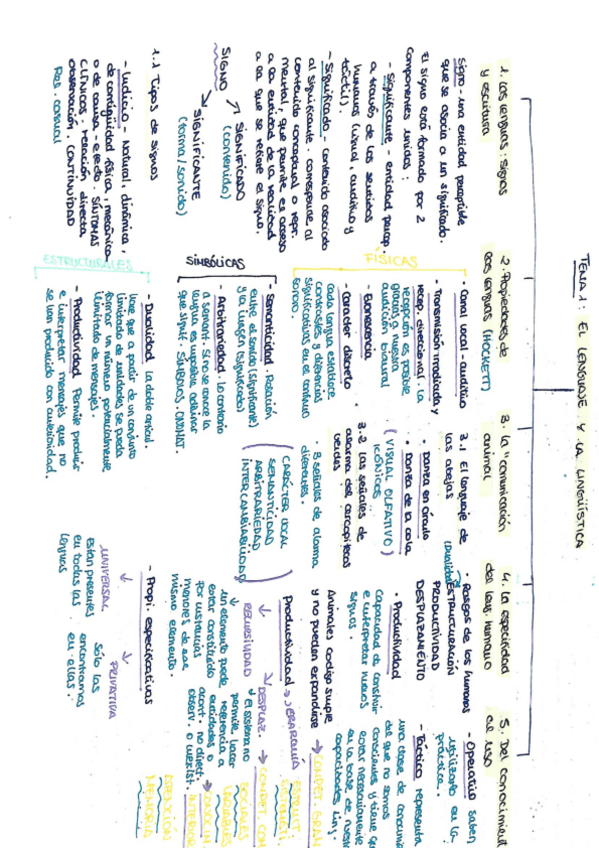 TEMA 1: EL LENGUAJE Y LA LINGÜÍSTICA
1. Las lenguas: signos
y escritura
Signo - una entidad perceptible
que se asocia a un significado.
El signo está formado por 2
componentes unidos:
- Significante - entidad percep.
a través de los sentidos
humanos (visual, auditivo y
táctil).
- Significado - contenido asociado
al significante. corresponde al
contenido conceptual o repr.
mental, que permite el acceso
a la entidad de la realidad
a la que se refiere el signo.
SIGNO
SIGNIFICADO
(contenido)
SIGNIFICANTE
(forma/sonido)
1.1 Tipos de signos
- Indicio - natural, dinámica,
de contigüidad física, mecánica
o de causa-efecto. SÍNTOMAS
CLÍNICOS, relación directa
observación CONTINUIDAD
Rel. causal
2. Propiedades de
las lenguas (HOCKETT)
FÍSICAS
· Canal vocal-auditivo
· Transmisión irradiada y
recep. direccional. La
recepción es posible
gracias a nuestra
audición binaural
· Evanescencia
· Carácter discreto
cada lengua establece
contrastes y diferencias
significativas en el continuo
sonoro.
SIMBÓLICAS
- Semanticidad. Relación
entre el señal (significante)
y la imagen (significado)
- Arbitrariedad. lo contrario
a semant. Si no se conoce la
lengua es imposible adivinar
que signif. SÍMBOLOS.
ESTRUCTURALES
- Dualidad La doble articul.
hace que a partir de un conjunto
limitado de unidades se pueda
formar un número potencialmente
ilimitado de mensajes.
- Productividad Permite producir
e interpretar mensajes que no
se han producido con anterioridad.
3. La "comunicación
animal
3.1 El lenguaje de
las abejas
· Danza en círculo
· Danza de la cola
(VISUAL OLFATIVO)
ICÓNICOS
3.2 Las señales de
alarma del cercopiteco
verdes
· 3 señales de alarma
diferentes.
CARÁCTER VOCAL
SEMANTICIDAD
ARBITRARIEDAD
INTERCAMBIABILIDAD
4. La especifidad
del leng. humano
- Rasgos de los humanos
(Dualidad) ESTRUCTURACIÓN
PRODUCTIVIDAD
DESPLAZAMIENTO
· Productividad
Capacidad de construir
e interpretar nuevos
signos.
Animales código simple
y no pueden expandirse
Productividad → JERARQUÍA
RECURSIVIDAD
un elemento puede
estar constituido
por instancias
menores de ese
mismo elemento.
DESPLAZ.
el sistema no
permite hacer
referencia a
entidades o
acont. no direct.
observ. o inexist.
- Propi. especificativas
UNIVERSAL
Están presentes
en todas las
lenguas
PRIVATIVA
Sólo las
encontramos
en ellas.
5. Del conocimient
al uso
- Operativo saben
utilizarlo en la
práctica.
- Táctico representa
una clase de conocimie
del que no somos
conscientes y tiene que
estar necesariamente
en la base de nuestr
capacidades ling.
→ COMPET. GRAM
→ COMPET. COM
SOCIALES
ATENCIÓN
MEMORIA